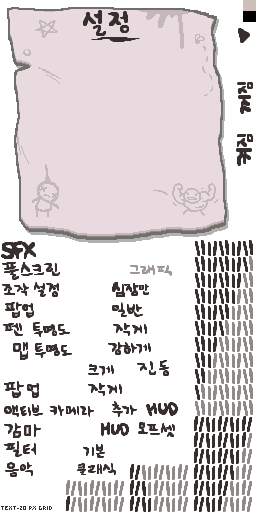 설정
SFX
풀스크린 그래픽
조작 설정 심장만
팝업 일반
펜 투명도 작게
맵 투명도 강하게
크게 진동
팝업 작게
액티브 카메라 추가 HUD
감마 HUD 오프셋
필터 기본
음악 클래식
TEXT-20 PX GRID